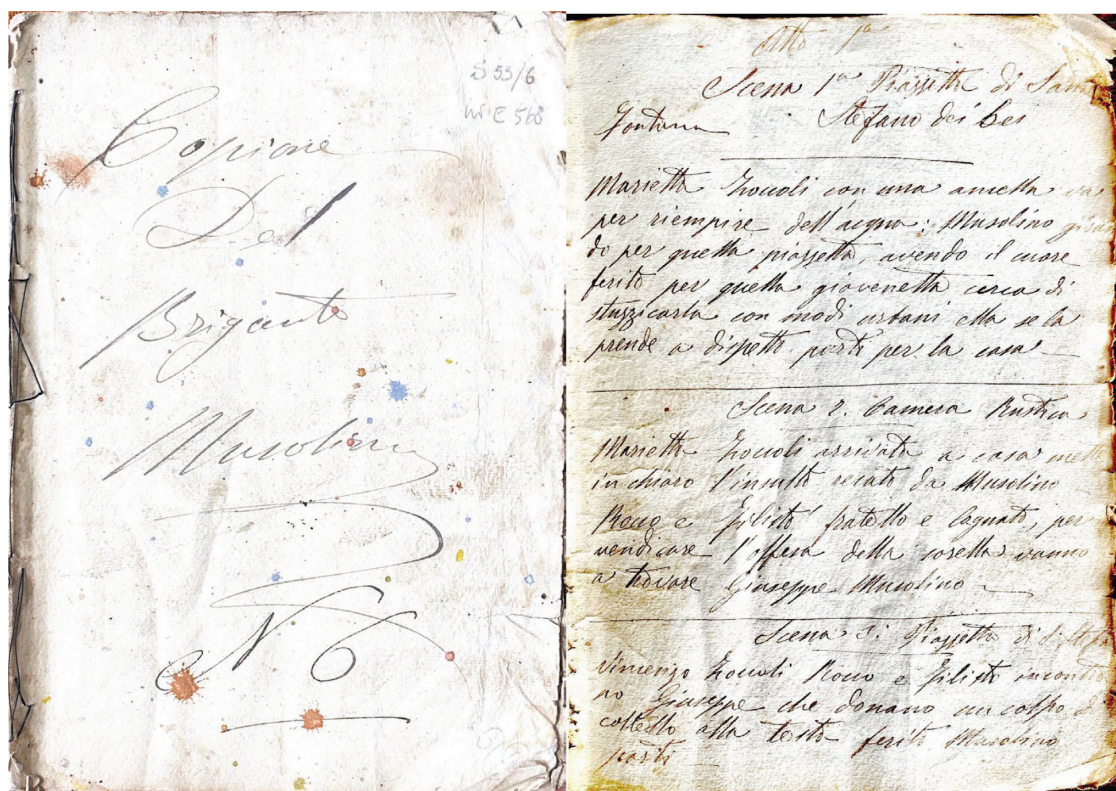 S 53/6
Copione
Del
Brigante
Musolino
N 6
Atto 1º
Scena 1ª Piazzetta di San
Fontana Stefano dei Bes
Marietta Zoccoli con una ancella va
per riempire dell'acqua: Musolino giran
do per quella piazzetta, avendo il cuore
ferito per quella giovenetta cerca di
stuzzicarla con modi urbani ella se la
prende a dispetto parti per la casa
Scena 2. Camera Rustica
Marietta Zoccoli arrivata a casa mette
in chiaro l'insulto recato da Musolino
Rocco e Filisto fratello e cognato, per
vendicare l'offesa della sorella vanno
a trovare Giuseppe Musolino
Scena 3: Piazzetta di S. Stefa
Vincenzo Zoccoli Rocco e Filisto incontra
no Giuseppe che donano un colpo di
coltello alla testa ferito Musolino
parti